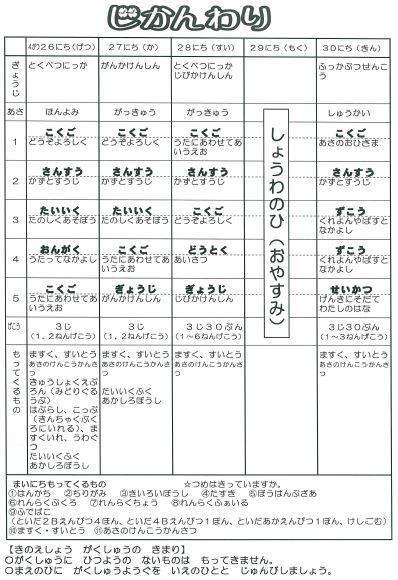 じかんわり
4がつ26にち(げつ) 27にち(か) 28にち(すい) 29にち(もく) 30にち(きん)
ぎょうじ
とくべつにっか がんかけんしん とくべつにっか ふっかぶつせんこ
じびかけんしん う
あさ ほんよみ がっきゅう がっきゅう しゅうかい
しょうわのひ(おやすみ)
1 こくご こくご こくご こくご
どうぞよろしく どうぞよろしく うたにあわせてあ あさのおひさま
いうえお
2 さんすう さんすう さんすう さんすう
かずとすうじ かずとすうじ かずとすうじ かずとすうじ
3 たいいく たいいく こくご ずこう
たのしくあそぼう たのしくあそぼう どうぞよろしく くれよんやぱすと
なかよし
4 おんがく こくご どうとく ずこう
うたってなかよし うたにあわせてあ あいさつ くれよんやぱすと
いうえお なかよし
5 こくご ぎょうじ ぎょうじ せいかつ
うたにあわせてあ がんかけんしん じびかけんしん げんきにそだて
いうえお わたしのはな
げこう 3じ 3じ 3じ30ぷん 3じ30ぷん
(1,2ねんげこう) (1,2ねんげこう) (1~6ねんげこう) (1~3ねんげこう)
もってくるもの
ますく、すいとう ますく、すいとう ますく、すいとう ますく、すいとう
あさのけんこうかんさつ あさのけんこうかんさつ あさのけんこうかんさつ あさのけんこうかんさつ
きゅうしょくえぷ
ろん(みどりぐる
うぷ) たいいくふく
はぶらし、こっぷ あかしろぼうし
(きんちゃくぶく
ろにいれる)、ま
すくいれ、うわぐ
つ
たいいくふく
あかしろぼうし
まいにちもってくるもの ☆つめはきっていますか。
①はんかち ②ちりがみ ③きいろいぼうし ④たすき ⑤ぼうはんぶざあ
⑥れんらくぶくろ ⑦れんらくちょう ⑧れんらくふぁいる
⑨ふでばこ
(といだ2Bえんぴつ4ほん、といだ4Bえんぴつ1ぽん、といだあかえんぴつ1ぽん、けしごむ)
⑩ますく・すいとう ⑪あさのけんこうかんさつ
【きのえしょう がくしゅうの きまり】
○がくしゅうに ひつようの ないものは もってきません。
○まえのひに がくしゅうようぐを いえのひとと じゅんびしましょう。